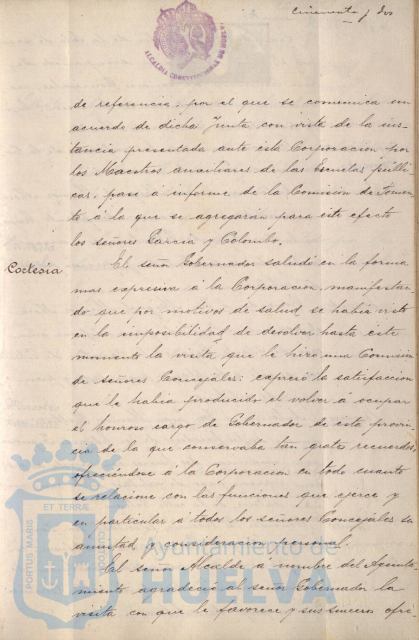 Cincuenta y dos
ALCALDIA CONSTITUCIONAL DE HUELVA
de referencia, por el que se comunica un
acuerdo de dicha Junta con vista de la ins-
tancia presentada ante esta Corporacion por
los Maestros auxiliares de las Escuelas públi-
cas, pase á informe de la Comision de Fomen-
to á la que se agregarán para este efecto
los señores Garcia y Colombo.
Cortesia
El señor Gobernador saludó en la forma
mas expresiva á la Corporacion, manifestan-
do que por motivos de salud se habia visto
en la imposibilidad de devolver hasta este
momento la visita que le hizo una Comision
de señores Concejales: expresó la satisfaccion
que le habia producido el volver á ocupar
el honroso cargo de Gobernador de esta provin-
cia de la que conservaba tan gratos recuerdos,
ofreciéndose á la Corporacion en todo cuanto
se relacione con las funciones que ejerce y
en particular á todos los señores Concejales su
amistad y consideracion personal.
El señor Alcalde a nombre del Ayunta-
miento agradeció al señor Gobernador la
visita con que le favorece y sus sinceros ofre-
ET TERRÆ
PORTUS MARIS
Ayuntamiento de
HUELVA